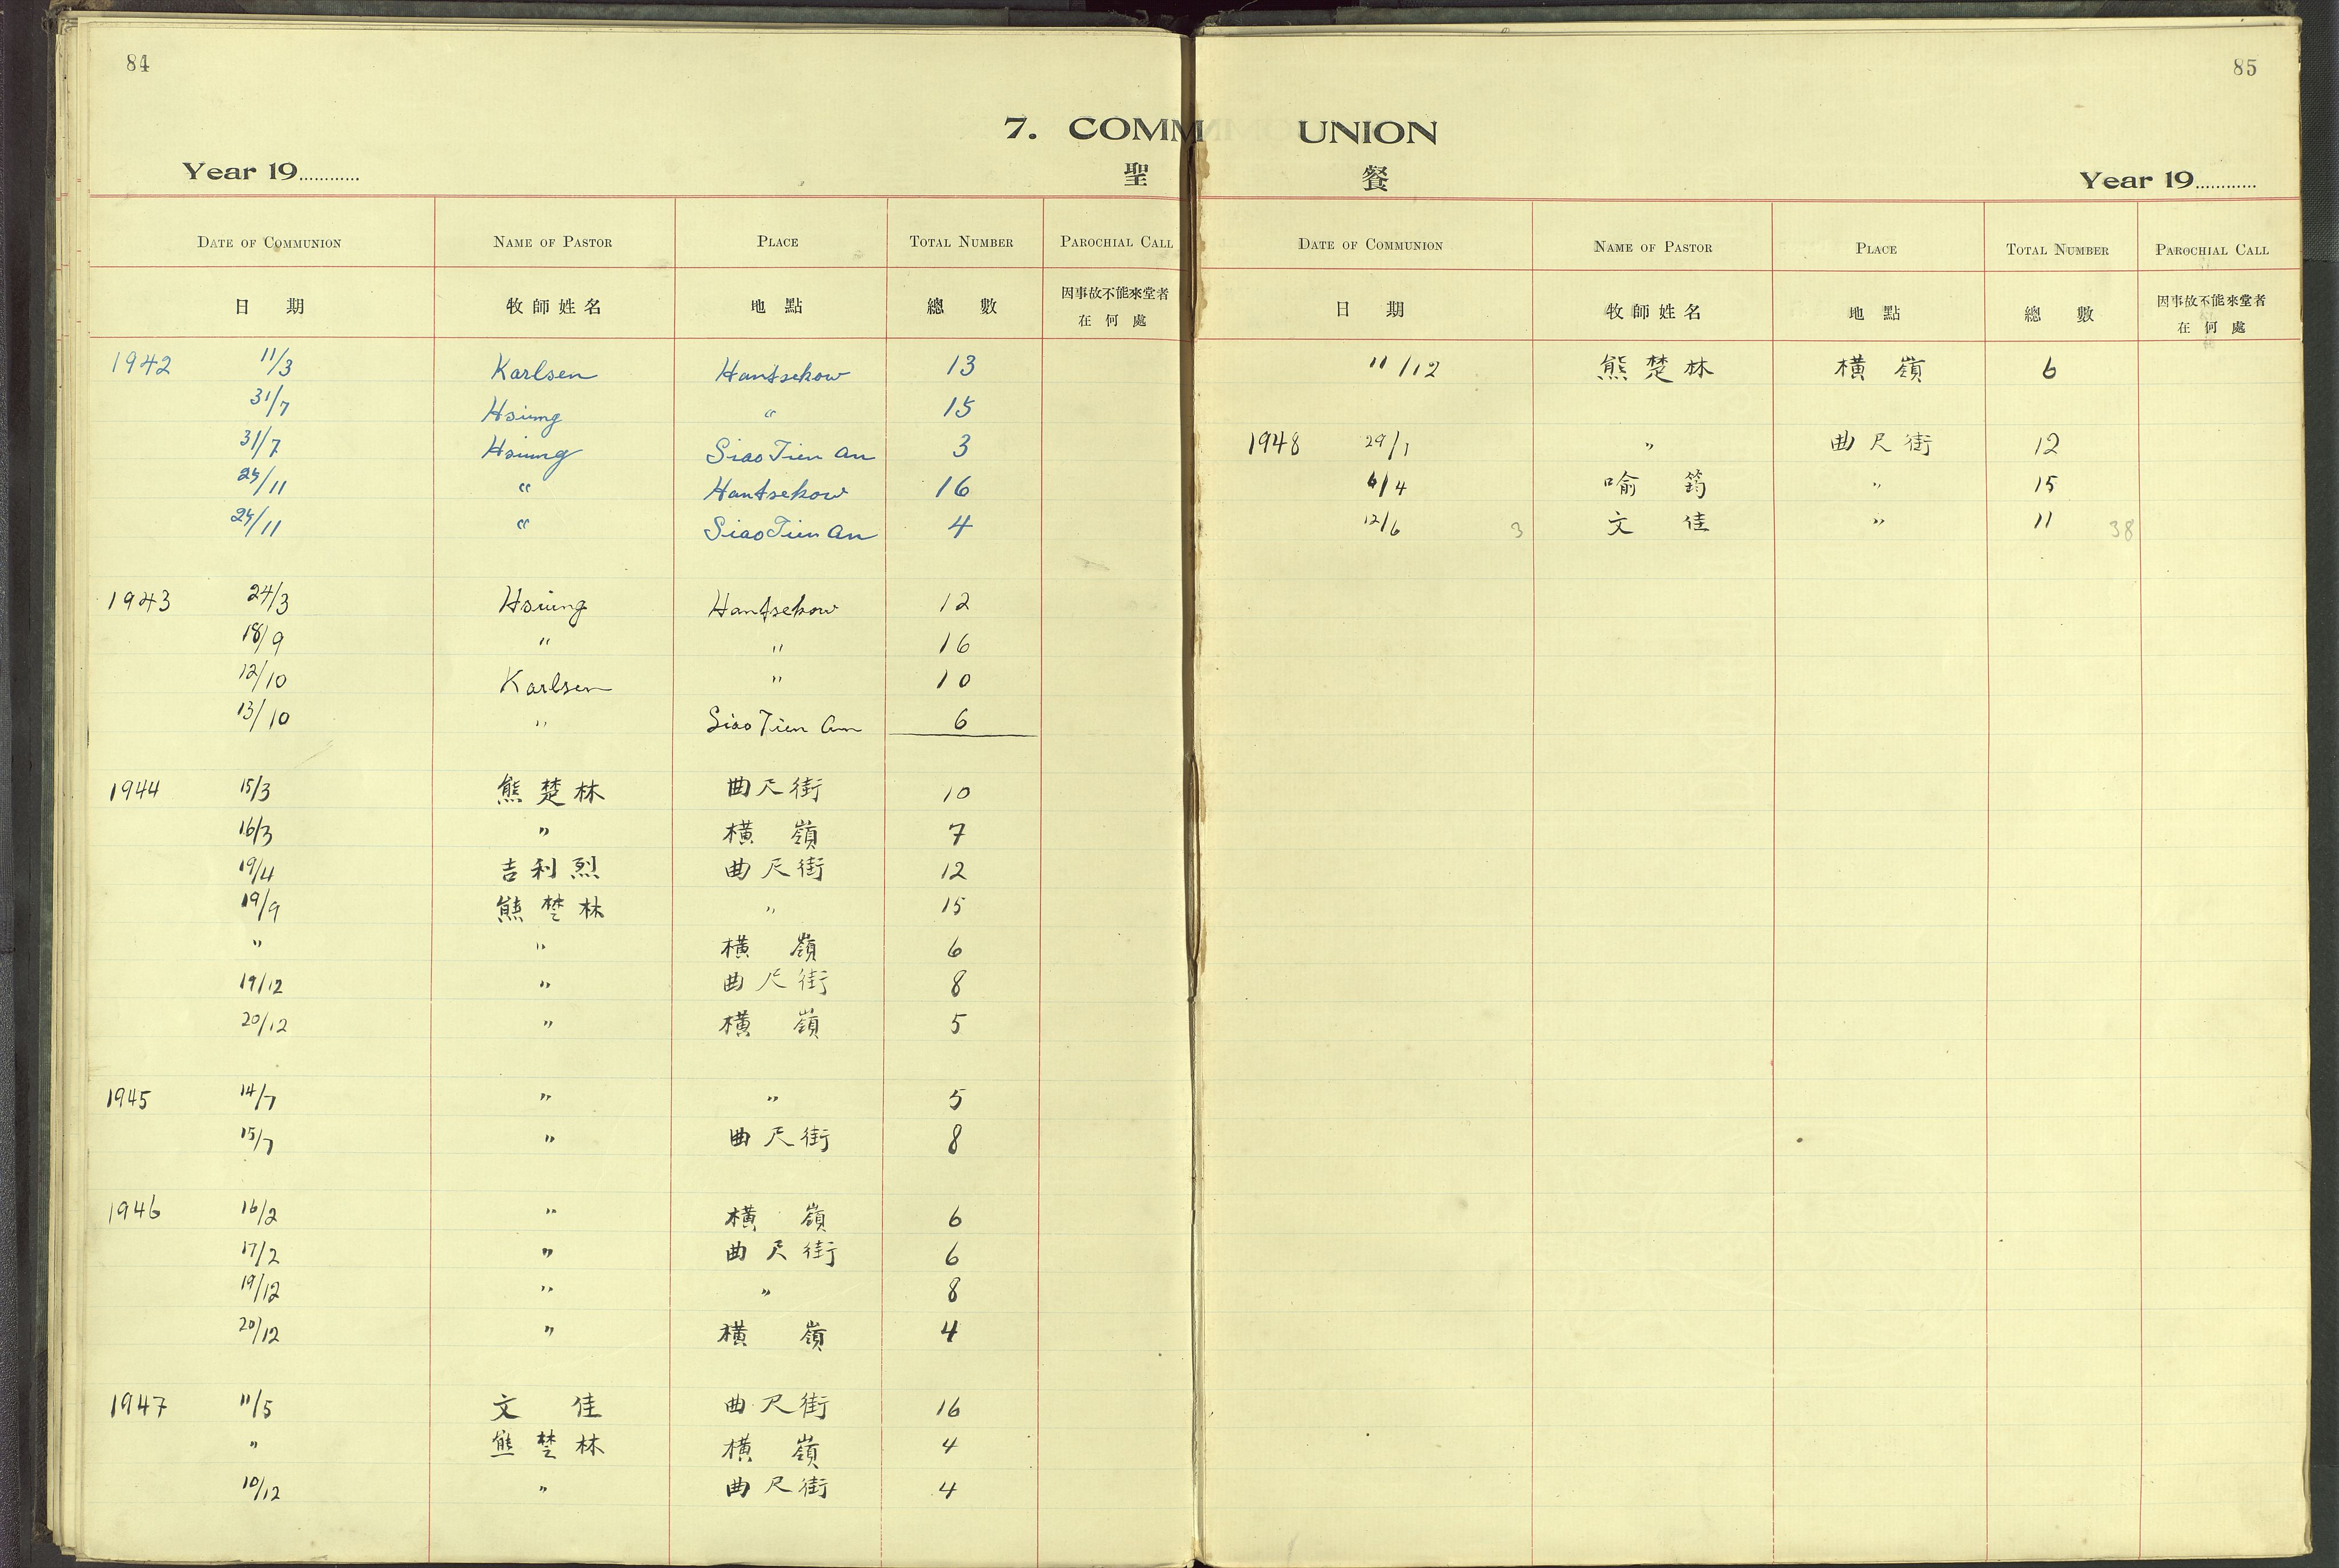 84
7. COMM
Year 19............
聖
DATE OF COMMUNION NAME OF PASTOR PLACE TOTAL NUMBER PAROCHIAL CALL
日 期 牧師姓名 地點 總 數 因事故不能來堂者
在何處
1942 11/3 Karlsen Hantsekow 13
31/7 Hsiung " 15
31/7 Hsiung Siao Tien An 3
" Hantsekow 16
" Siao Tien An 4
1943 24/3 Hsiung Hantsekow 12
18/9 " " 16
12/10 Karlsen " 10
13/10 " Siao Tien An 6
1944 15/3 熊楚林 曲尺街 10
16/3 " 橫嶺 7
19/4 吉利烈 曲尺街 12
19/9 熊楚林 " 15
" " 橫嶺 6
19/12 " 曲尺街 8
20/12 " 橫嶺 5
1945 14/7 " " 5
15/7 " 曲尺街 8
1946 16/2 " 橫嶺 6
17/2 " 曲尺街 6
19/12 " " 8
20/12 " 橫嶺 4
1947 11/5 文佳 曲尺街 16
" 熊楚林 橫嶺 4
10/12 " 曲尺街 4
85
UNION
餐
Year 19............
DATE OF COMMUNION NAME OF PASTOR PLACE TOTAL NUMBER PAROCHIAL CALL
日 期 牧師姓名 地點 總 數 因事故不能來堂者
在何處
11/12 熊楚林 橫嶺 6
1948 29/1 " 曲尺街 12
喻筠 " 15
12/6 3 文佳 " 11 38